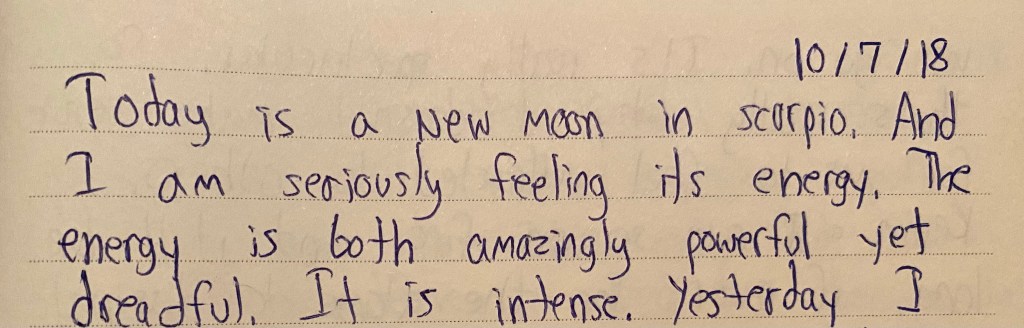 10/7/18
Today is a New Moon in scorpio. And
I am seriously feeling its energy. The
energy is both amazingly powerful yet
dreadful. It is intense. Yesterday I